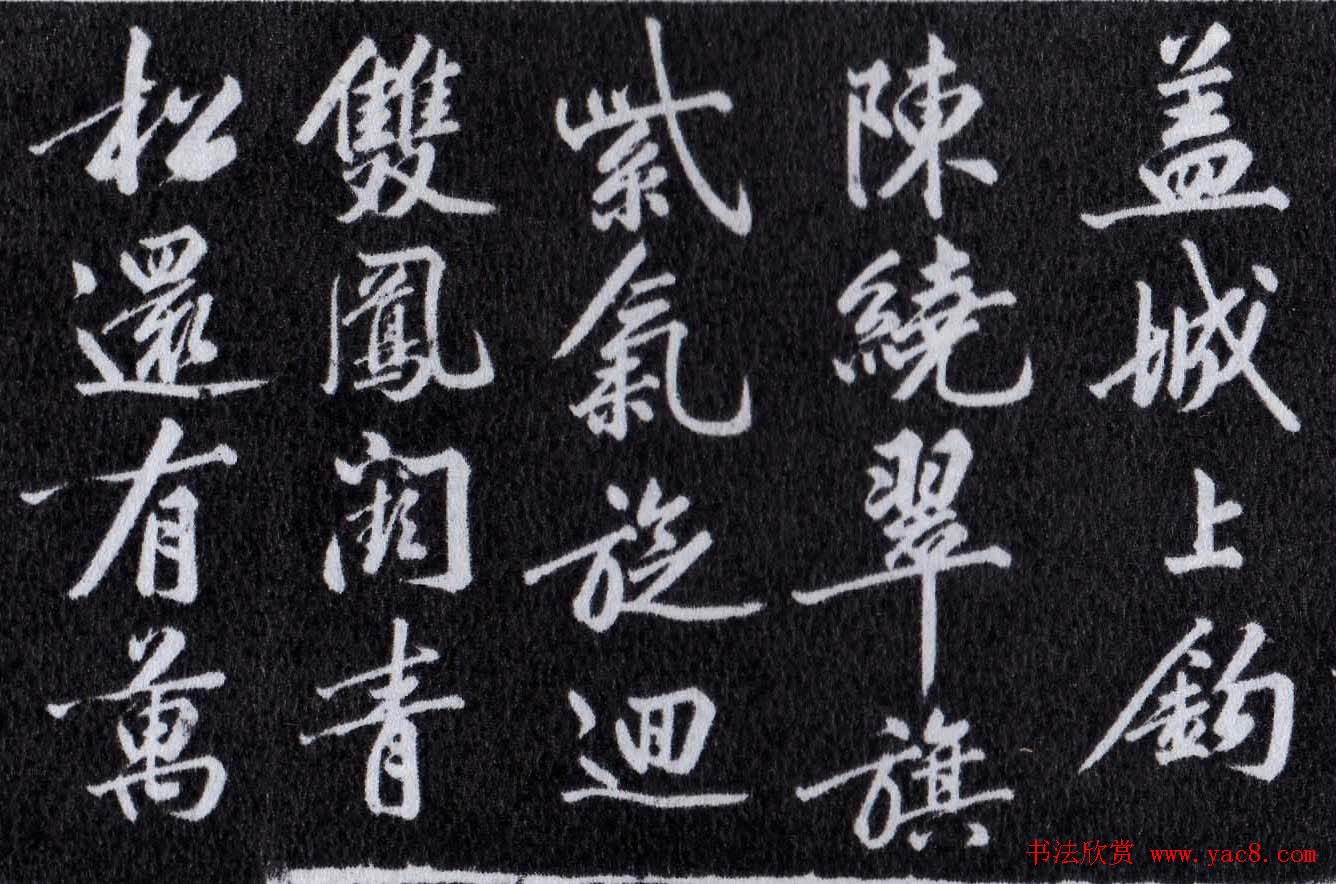 盖城上鈎
陳繞翠旗
紫氣旋迴
雙鳳闕青
松還有萬
书法欣赏 www.yac8.com